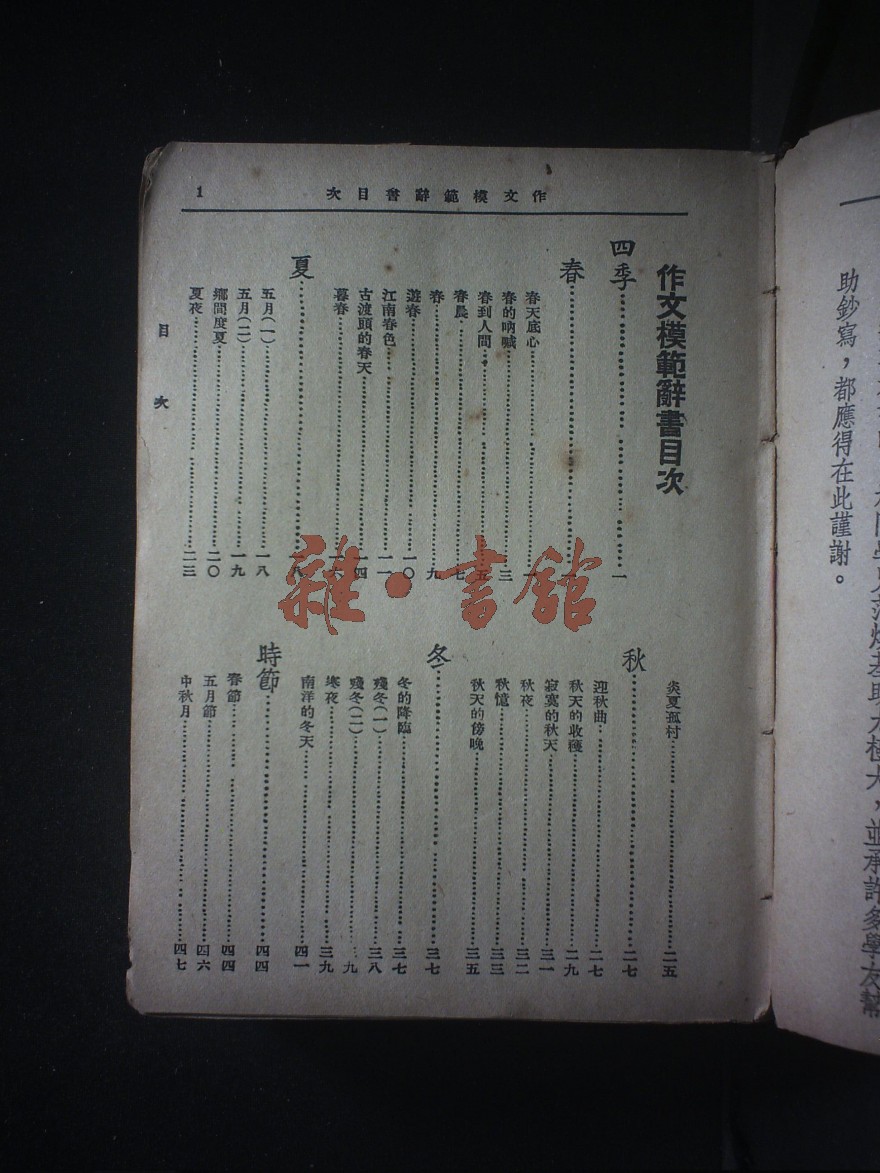 作文模範辭書目次
1
作文模範辭書目次
四季……一
春……一
春天底心……一
春的吶喊……三
春到人間……五
春晨……七
春……九
遊春……一〇
江南春色……一一
古渡頭的春天……一四
暮春……一六
夏……一八
五月(一)……一八
五月(二)……一九
鄉間度夏……二〇
夏夜……二三
炎夏孤村……二五
秋……二七
迎秋曲……二七
秋天的收穫……二九
寂寞的秋天……三一
秋夜……三二
秋憶……三三
秋天的傍晚……三五
冬……三七
冬的降臨……三七
殘冬(一)……三八
殘冬(二)……三九
寒夜……三九
南洋的冬天……四一
時節……四四
春節……四四
五月節……四六
中秋月……四七
目次
助鈔寫,都應得在此謹謝。
雜·書館